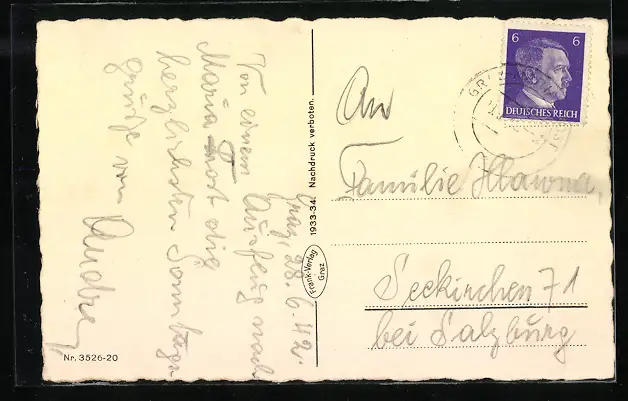 Graz, 28.6.42.
Von einem Ausflug nach
Maria Trost die
herzlichsten Sonntags
grüße von
Nr. 3526-20
1933-34. Nachdruck verboten.
Frank-Verlag
Graz
6 6
DEUTSCHES REICH
An
Familie
Seekirchen 71
bei Salzburg